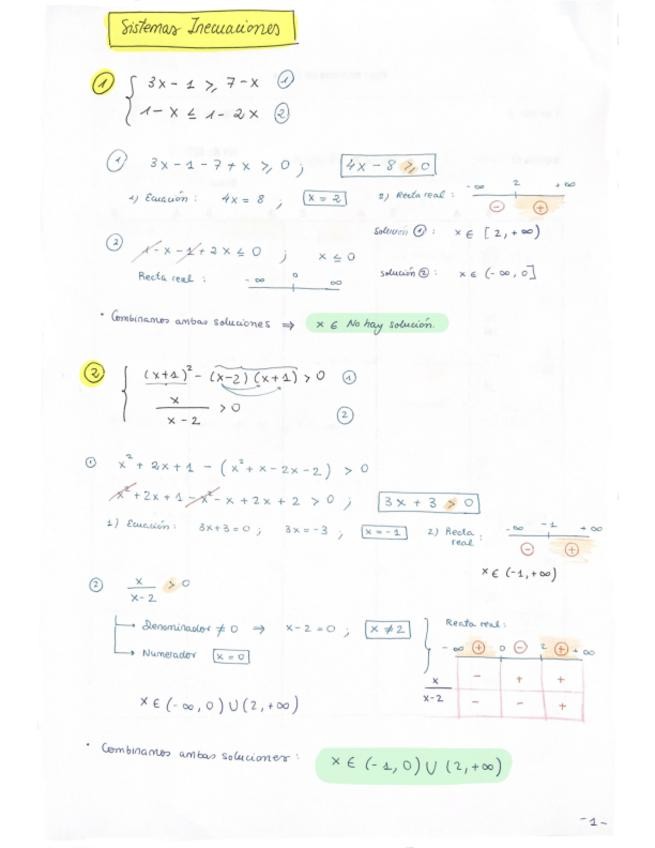 Sistemas Inecuaciones
1 { 3x - 1 ≥ 7 - x ①
1 - x ≤ 1 - 2x ②
① 3x - 1 - 7 + x ≥ 0 ; 4x - 8 ≥ 0
1) Ecuación : 4x = 8 ; x = 2 2) Recta real : -∞ 2 +∞
- +
Solución ① : x ∈ [2, +∞)
② 1 - x - 1 + 2x ≤ 0 ; x ≤ 0
Recta real : -∞ 0 ∞ solución ② : x ∈ (-∞, 0]
· Combinamos ambas soluciones ⇒ x ∈ No hay solución.
2 { (x+1)² - (x-2)(x+1) > 0 ①
x / x-2 > 0 ②
① x² + 2x + 1 - (x² + x - 2x - 2) > 0
x² + 2x + 1 - x² - x + 2x + 2 > 0 ; 3x + 3 > 0
1) Ecuación : 3x+3=0 ; 3x = -3 ; x = -1 2) Recta real : -∞ -1 +∞
- +
x ∈ (-1, +∞)
② x / x-2 > 0
Denominador ≠ 0 ⇒ x - 2 = 0 ; x ≠ 2 } Recta real :
Numerador x = 0 -∞ + 0 - 2 + +∞
x - + +
x-2 - - +
x ∈ (-∞, 0) ∪ (2, +∞)
· Combinamos ambas soluciones : x ∈ (-1, 0) ∪ (2, +∞)
-1-